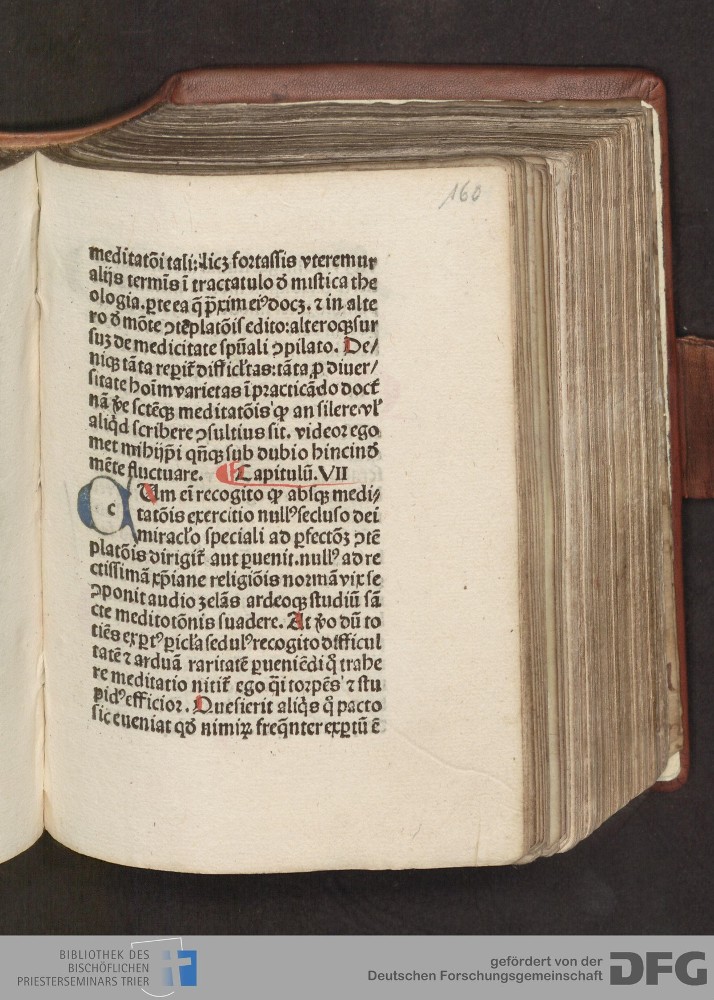 160
meditatōi tali: licꝫ fortassis vteremur
alijs termīs ī tractatulo đ mistica the
ologia. ꝑte ea q̄ p̄xim eiꝰ docꝫ. ⁊ in alte
ro đ mōte ꝯtēplatōis edito: alteroqꝫ sur
suꝫ de medicitate spūali ꝯpilato. De/
niqꝫ tāta reperit̄ difficl̄tas: tāta ꝓ diuer/
sitate hoīm varietas ī practicādo doct̄
nā de sctēqꝫ meditatōis ꝙ an silere vl̓
aliq̇d scribere ꝯsultius sit. videor ego
met mihijp̄i qn̄qꝫ sub dubio hincinđ
mēte fluctuare. Capitulū. VII
c Um eī recogito ꝙ absqꝫ medi/
tatōis exercitio nullꝰ secluso dei
miracl̓o speciali ad ꝑfectōꝫ ꝯtē
platōis dirigit̄ aut ꝑuenit. nullꝰ ad re
ctissimā xp̄iane religiōis normā vix se
ꝯponit audio zelās ardeoqꝫ studiū sā
cte meditotōnis suadere. At v̓o dū to
tiēs exꝑtꝰ ꝑicl̓a sedulꝰ recogito difficul
tatē ⁊ arduā raritatē ꝑueniēdi q̄ trahe
re meditatio nitit̄ ego q̇i torpēs ⁊ stu
pidꝰ efficior. Quesierit aliq̇s q̊ pacto
sic eueniat qđ nimiꝝ freq̄nter exꝑtū ē
BIBLIOTHEK DES
BISCHÖFLICHEN
PRIESTERSEMINARS TRIER
gefördert von der
Deutschen Forschungsgemeinschaft
DFG